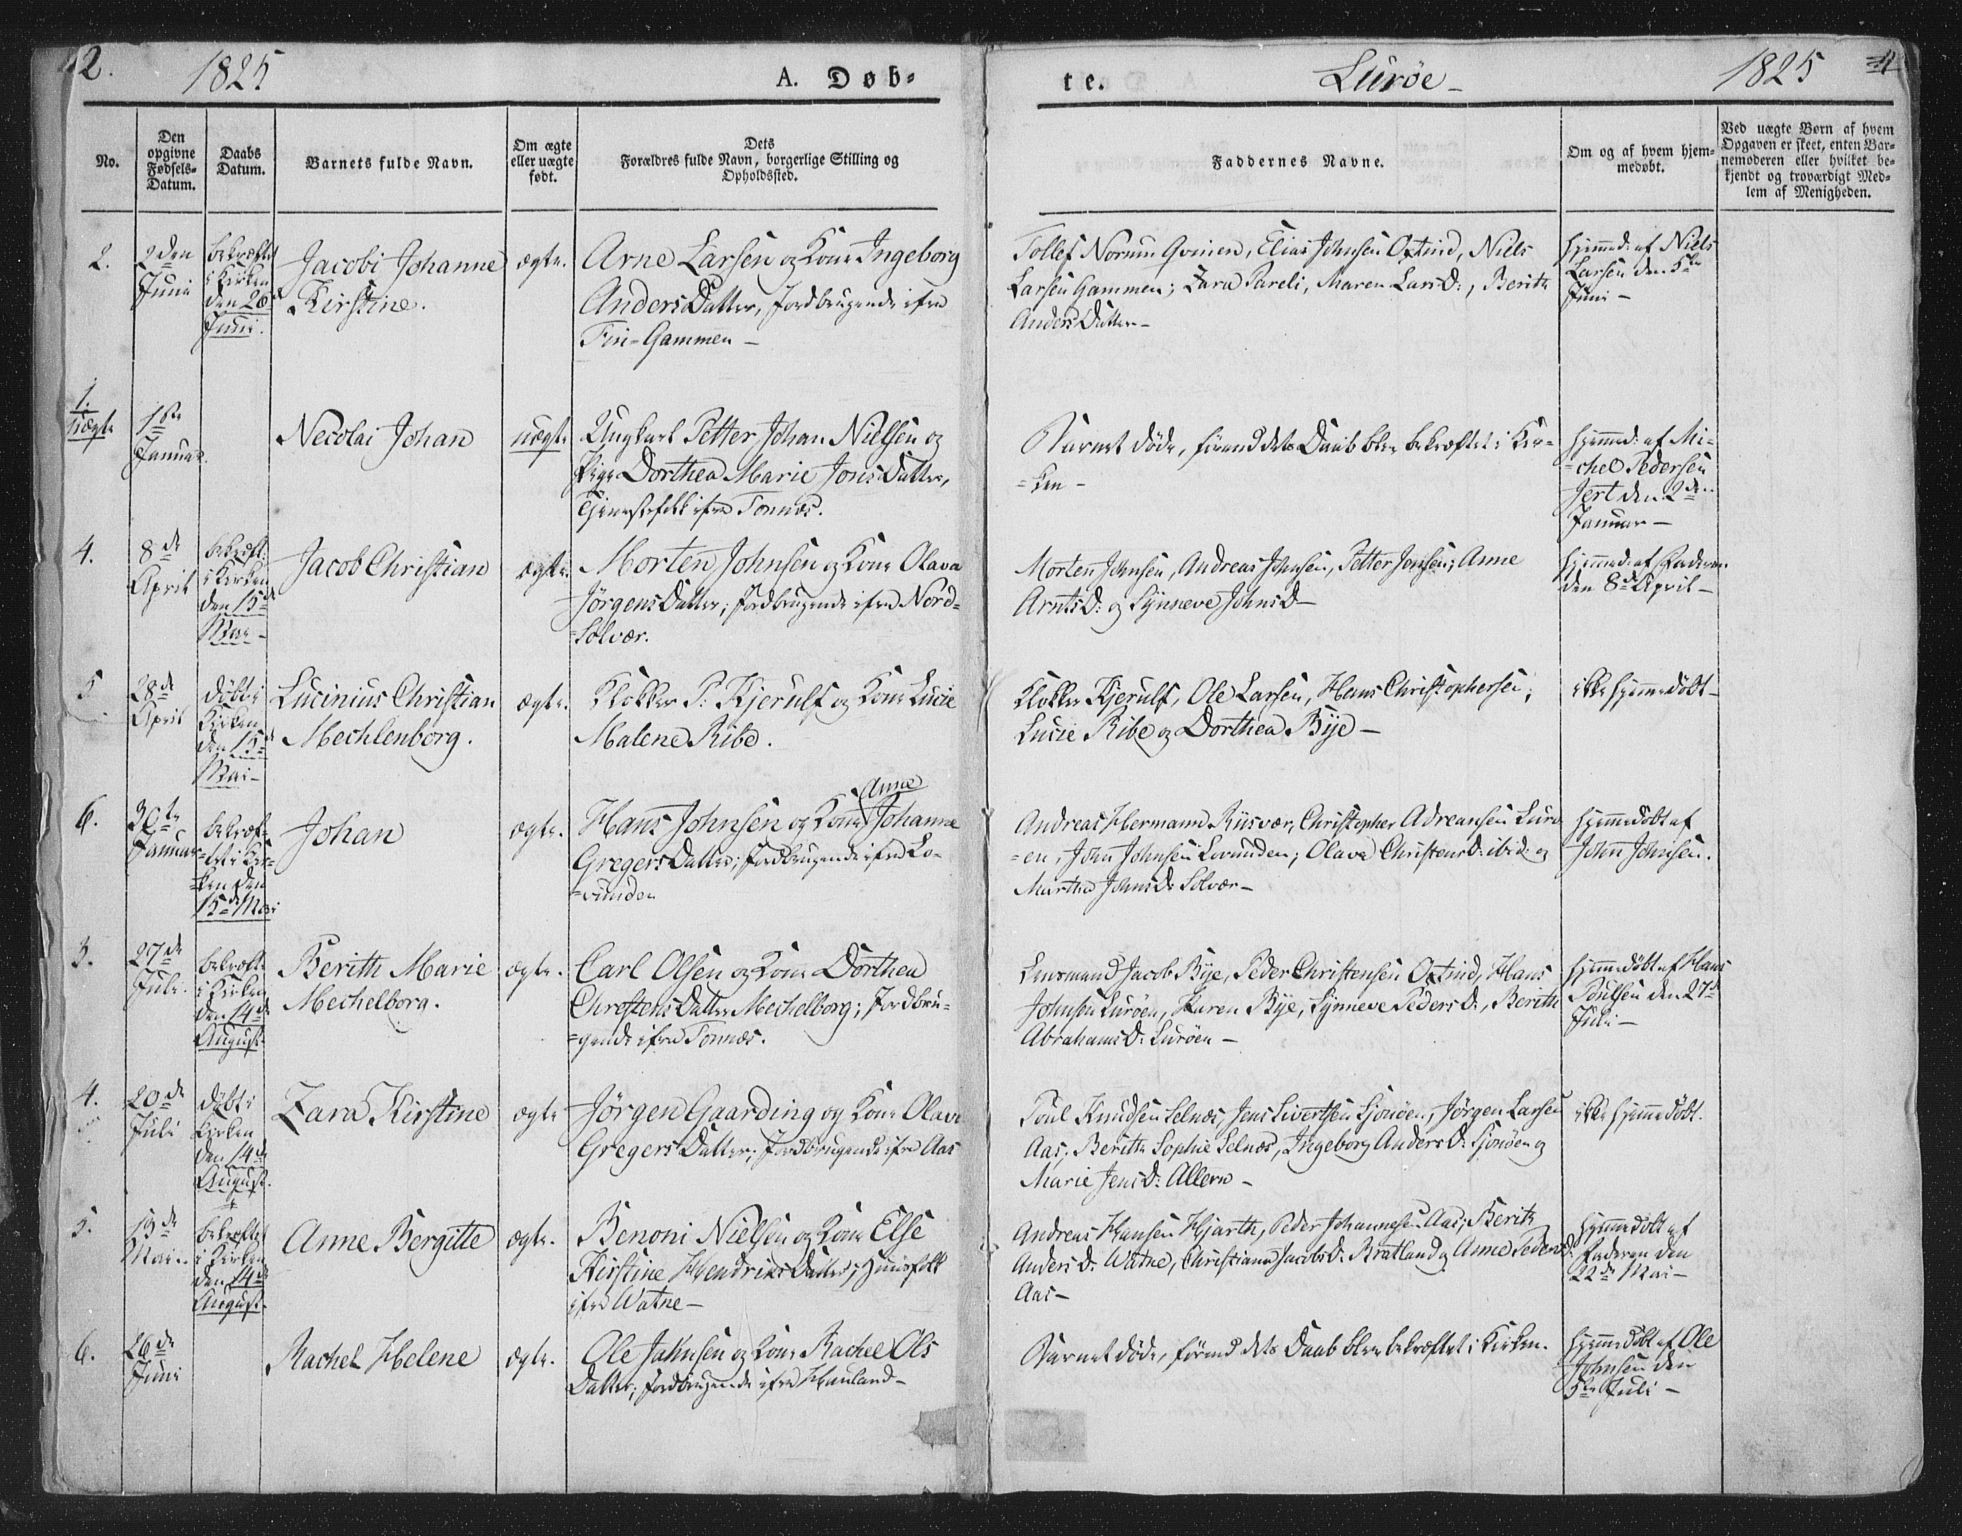 2.
1825
A. Døb-
te.
Lurøe
1825
4
No.
Den opgivne Fødsels-Datum.
Daabs Datum.
Barnets fulde Navn.
Om ægte eller uægte født.
Dets Forældres fulde Navn, borgerlige Stilling og Opholdssted.
Faddernes Navne.
Om og af hvem hjem-medøbt.
Ved uægte Børn af hvem Opgaven er skeet, enten Bar-nemoderen eller hvilket be-kjendt og troværdigt Med-lem af Menigheden.
2.
2den
Juni
bekræftet
i Kirken
den 26
Juni.
Jacobi Johanne
Kirstine.
ægte.
Arne Larsen og Kone Ingeborg
Anders Datter, Jordbrugende ifra
Fin-Gammen –
Tollef Normu Qvinen, Elias Johnsen Oxtind, Niels
Larsen Gammen; Zara Pareli, Maren Lars D:, Berith
Anders Datter –
Hjemmed: af Niels
Larsen den 5te
Juni –
1.
uægte
1ste
Januar.
Necolai Johan
uægte
Ungkarl Petter Johan Nielsen og
Pige Dorthea Marie Jons Datter,
Tjenestefolk ifra Tonnæs.
Barnet døde, førend dets Daab blev bekræftet i Kir-
=ken –
Hjemmed: af Mi-
=chel Pedersen
Jert den 2den
Januar –
4.
8de
April
bekræft.
i Kirken
den 15de
Mai –
Jacob Christian
ægte.
Morten Johnsen og Kone Olava
Jörgens Datter; Jordbrugende ifra Nord-
=Solvær.
Morten Johnsen, Andreas Johnsen, Petter Jensen; Anne
Arnts D: og Synneve Johns D –
Hjemmed: af Faderen
den 8de April –
5
28de
April
døbt i
Kirken
den 15de
Mai –
Lucinius Christian
Mechlenborg.
ægte.
Klokker P: Kjerulf og Kone Lucie
Malene Ribe.
Klokker Kjerulf, Ole Larsen, Hans Christophersen;
Lucie Ribe og Dorthea Bye –
ikke hjemmedøbt –
6.
30te
Januar
bekræf-
=tet i Kir-
=ken den
15de Mai
Johan
ægte.
Anne
Hans Johnsen og Kone Johanne
Gregers Datter; Jordbrugende ifra Lo-
=vunden
Andreas Hermann Riisvær, Christopher Adreansen Lurö
=en, John Johnsen Lovunden; Olava Christens D: ibid: og
Martha Johns D: Solvær –
Hjemmedöbt af
John Johnsen.
3.
27de
Juli.
bekræft.
i Kirken
den 14de
August.
Berith Marie
Mechelborg.
ægte.
Carl Olsen og Kone Dorthea
Chrestens Datter Mechelborg; Jordbru-
=gende ifra Tonnæs.
Lensmand Jacob Bye, Peder Christensen Oxtind, Hans
Johnsen Luröen, Karen Bye, Synneve Peders D:, Berith
Abrahams D: Luröen –
Hjemmedöbt af Hans
Poulsen den 27de
Juli –
4.
20de
Juli
døbt i
Kirken
den 14de
August.
Zara Kirstine
ægte
Jörgen Gaarding og Kone Olava
Gregers Datter; Jordbrugende ifra Aas
Poul Knudsen Selnæs, Jens Sivertsen Sjonöen, Jörgen Larsen
Aas; Berith Sophie Selnæs, Ingeborg Anders D: Sjonöen og
Marie Jens D: Alleren –
ikke hjemmedöbt.
5.
19de
Mai
bekræftet
i Kirken
den 14de
August.
Anne Bergitte
ægte.
Benoni Nielsen og Kone Else
Kirstine Hendriks Datter; Huusfolk
ifra Watne –
Andreas Hansen Hjarth, Peder Johannesen Aas; Berith
Anders D: Watne, Christiana Jacobs D: Bratland og Anne Peders D:
Aas –
Hjemmedöbt af
Faderen den
22de Mai –
6.
26de
Juni
Rachel Helene
ægte.
Ole Johnsen og Kone Rachel Ols
Datter; Jordbrugende ifra Hauland –
Barnet døde, førend dets Daab blev bekræftet i Kirken.
Hjemmedöbt af Ole
Johnsen den
3die Juli –